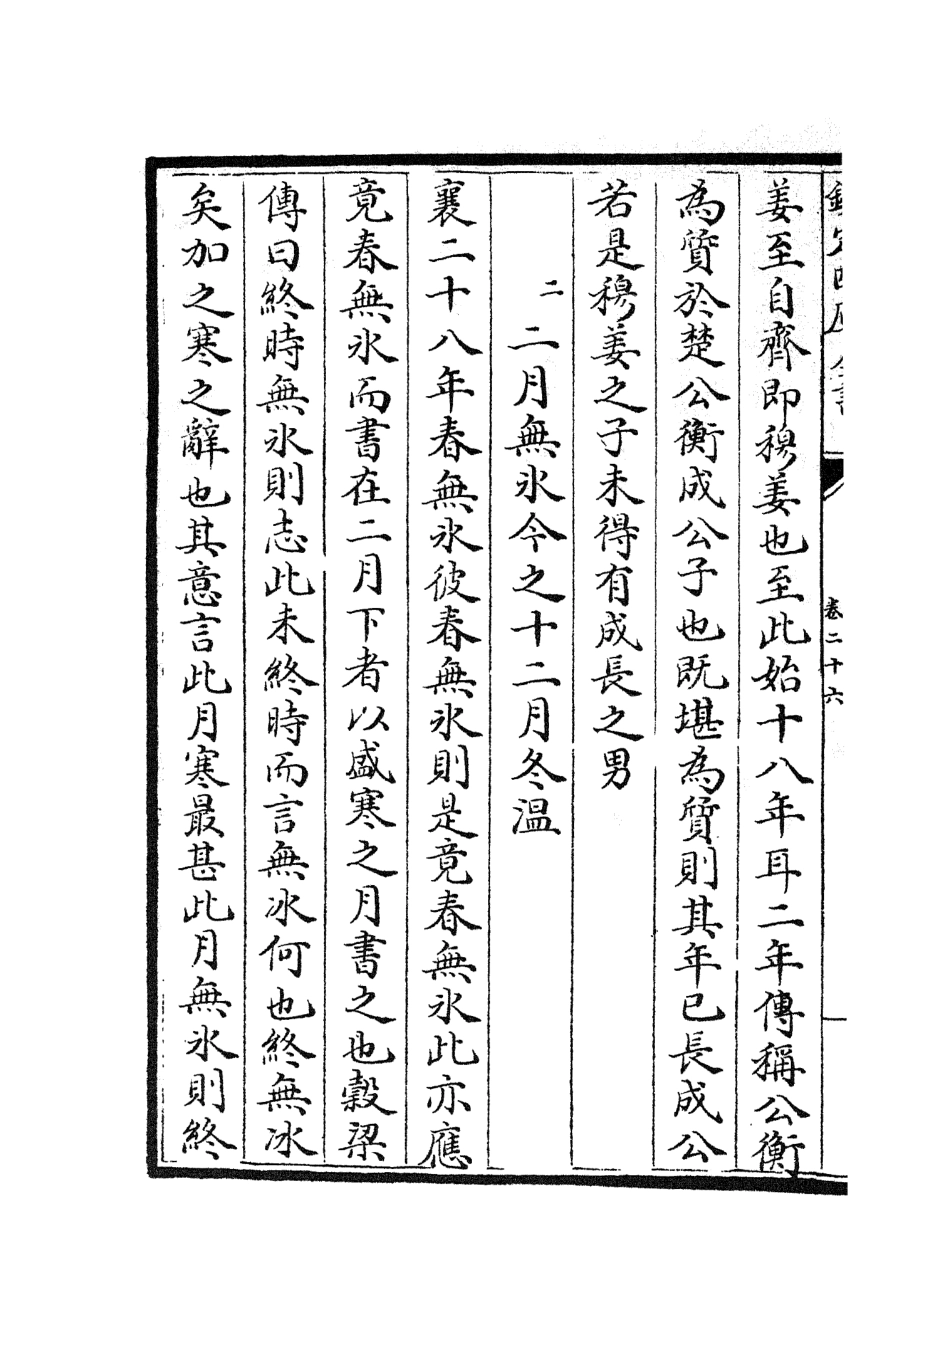 欽定四庫全書
卷二十六
姜至自齊即穆姜也至此始十八年耳二年傳稱公衡
為質於楚公衡成公子也既堪為質則其年已長成公
若是穆姜之子未得有成長之男
二 二月無氷今之十二月冬温
襄二十八年春無氷彼春無氷則是竟春無氷此亦應
竟春無氷而書在二月下者以盛寒之月書之也穀梁
傳曰終時無氷則志此未終時而言無冰何也終無冰
矣加之寒之辭也其意言此月寒最甚此月無氷則終